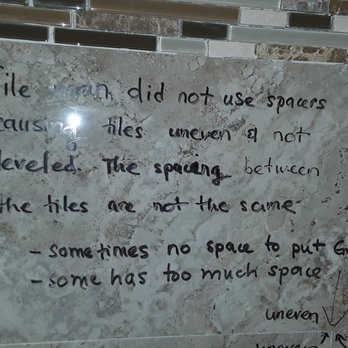 ile did not use spacers
causing tiles uneven & not
leveled. The spacing between
the tiles are not the same
- sometimes no space to put G
- some has too much space
uneven
uneven